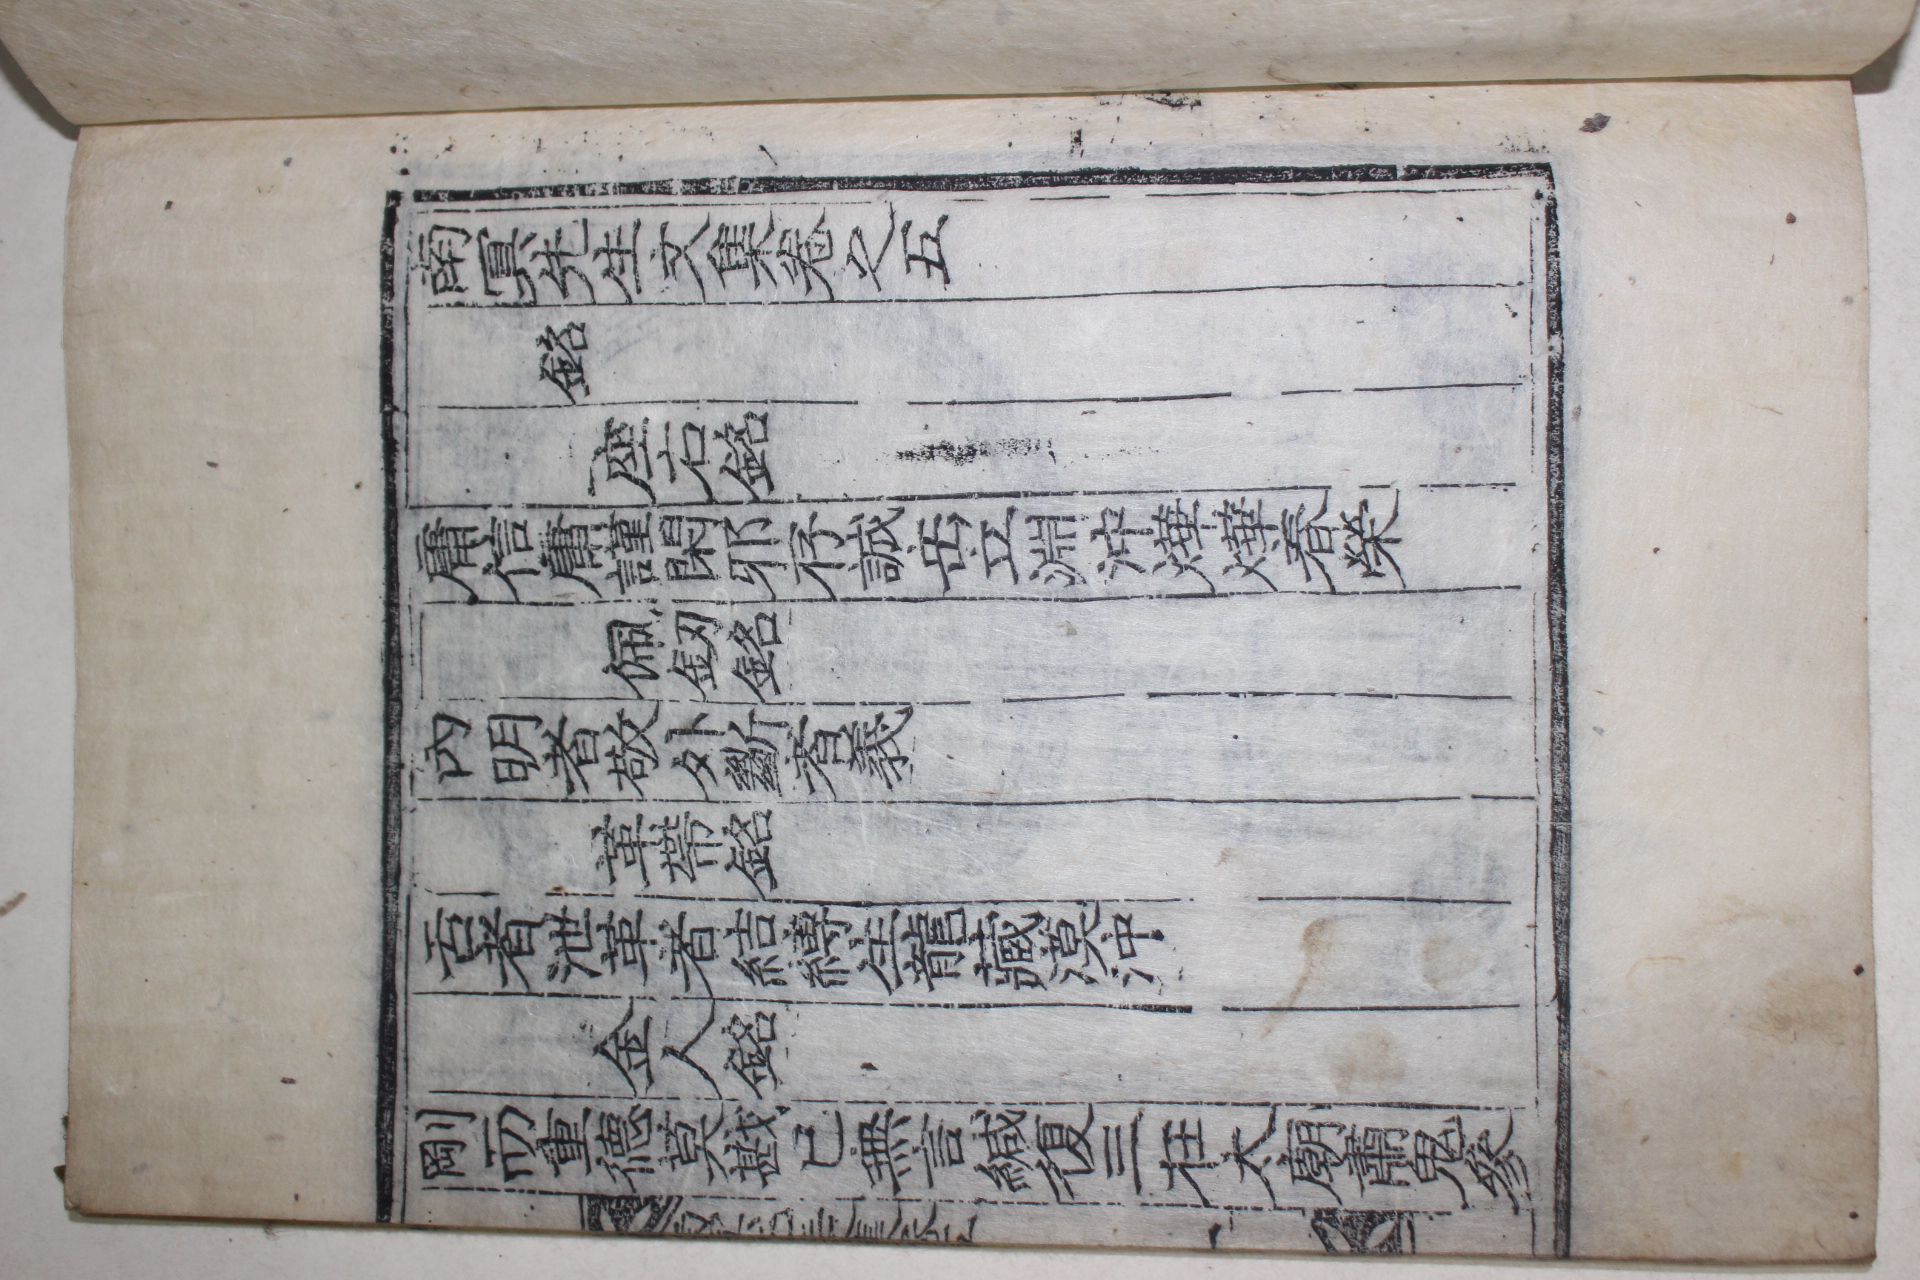 南冥先生文集卷之五
銘
座右銘
庸信庸謹閑邪存誠岳立淵沖燁燁春榮
佩釰銘
內明者敬外斷者義
革帶銘
舌者泄革者結縛生龍藏漠沖
金人銘
剛而重德莫戡已無言緘復三在太廟肅鬼參